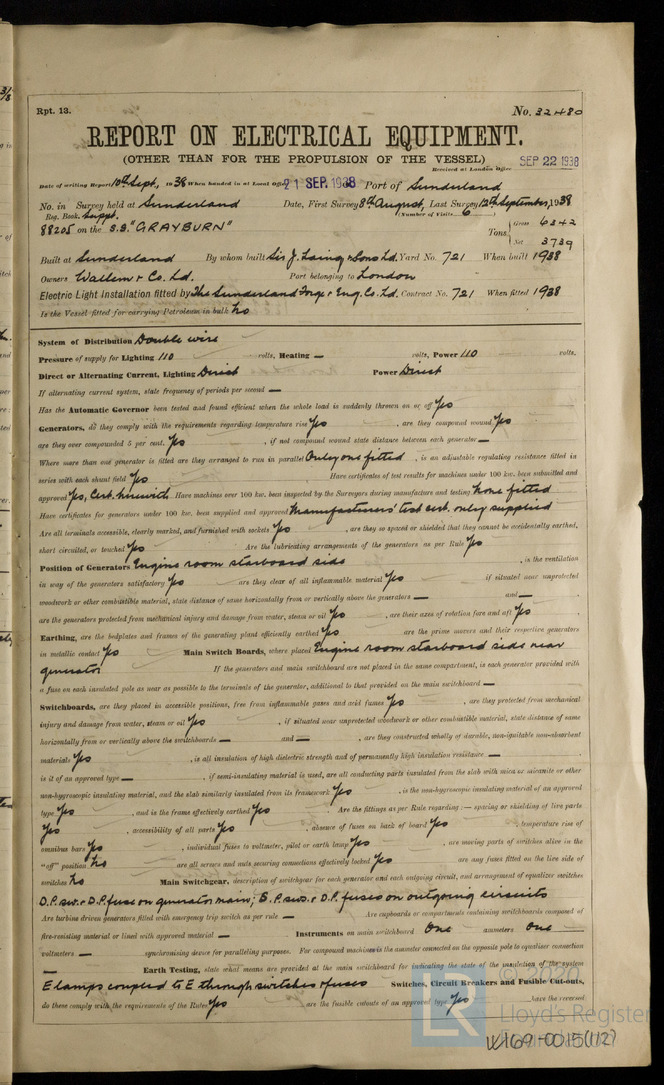 Rpt. 13.
No. 32480
REPORT ON ELECTRICAL EQUIPMENT.
(OTHER THAN FOR THE PROPULSION OF THE VESSEL)
Received at London Office SEP 22 1938
Date of writing Report 10th Sept, 1938 When handed in at Local Office 21 SEP. 1938 Port of Sunderland
No. in Survey held at Sunderland Date, First Survey 8th August, Last Survey 12th September, 1938
Reg. Book. Suppt. (Number of Visits 6)
88205 on the S.S. "GRAYBURN" Tons { Gross 6342
Net 3739
Built at Sunderland By whom built Sir J. Laing & Sons Ld. Yard No. 721 When built 1938
Owners Wallem & Co. Ld. Port belonging to London
Electric Light Installation fitted by The Sunderland Forge & Eng. Co. Ld. Contract No. 721 When fitted 1938
Is the Vessel fitted for carrying Petroleum in bulk No
System of Distribution Double wire
Pressure of supply for Lighting 110 volts, Heating — volts, Power 110 volts.
Direct or Alternating Current, Lighting Direct Power Direct
If alternating current system, state frequency of periods per second —
Has the Automatic Governor been tested and found efficient when the whole load is suddenly thrown on or off Yes
Generators, do they comply with the requirements regarding temperature rise Yes , are they compound wound Yes
are they over compounded 5 per cent. Yes , if not compound wound state distance between each generator —
Where more than one generator is fitted are they arranged to run in parallel Only one fitted , is an adjustable regulating resistance fitted in
series with each shunt field Yes Have certificates of test results for machines under 100 kw. been submitted and
approved Yes, Cert. herewith Have machines over 100 kw. been inspected by the Surveyors during manufacture and testing None fitted
Have certificates for generators under 100 kw. been supplied and approved Manufacturers' test cert. only supplied
Are all terminals accessible, clearly marked, and furnished with sockets Yes , are they so spaced or shielded that they cannot be accidentally earthed,
short circuited, or touched Yes Are the lubricating arrangements of the generators as per Rule Yes
Position of Generators Engine room starboard side , is the ventilation
in way of the generators satisfactory Yes are they clear of all inflammable material Yes if situated near unprotected
woodwork or other combustible material, state distance of same horizontally from or vertically above the generators — and — ,
are the generators protected from mechanical injury and damage from water, steam or oil Yes , are their axes of rotation fore and aft Yes
Earthing, are the bedplates and frames of the generating plant efficiently earthed Yes are the prime movers and their respective generators
in metallic contact Yes Main Switch Boards, where placed Engine room starboard side near
generator If the generators and main switchboard are not placed in the same compartment, is each generator provided with
a fuse on each insulated pole as near as possible to the terminals of the generator, additional to that provided on the main switchboard —
Switchboards, are they placed in accessible positions, free from inflammable gases and acid fumes Yes , are they protected from mechanical
injury and damage from water, steam or oil Yes , if situated near unprotected woodwork or other combustible material, state distance of same
horizontally from or vertically above the switchboards — and — , are they constructed wholly of durable, non-ignitable non-absorbent
materials Yes , is all insulation of high dielectric strength and of permanently high insulation resistance —
is it of an approved type — , if semi-insulating material is used, are all conducting parts insulated from the slab with mica or micanite or other
non-hygroscopic insulating material, and the slab similarly insulated from its framework Yes , is the non-hygroscopic insulating material of an approved
type Yes , and is the frame effectively earthed Yes . Are the fittings as per Rule regarding:— spacing or shielding of live parts
Yes , accessibility of all parts Yes , absence of fuses on back of board Yes , temperature rise of
omnibus bars Yes , individual fuses to voltmeter, pilot or earth lamp Yes , are moving parts of switches alive in the
"off" position No are all screws and nuts securing connections effectively locked Yes are any fuses fitted on the live side of
switches No Main Switchgear, description of switchgear for each generator and each outgoing circuit, and arrangement of equalizer switches
D.P. sw. & D.P. fuse on generator main; S.P. sws. & D.P. fuses on outgoing circuits
Are turbine driven generators fitted with emergency trip switch as per rule — Are cupboards or compartments containing switchboards composed of
fire-resisting material or lined with approved material — Instruments on main switchboard One ammeters One
voltmeters — synchronising device for paralleling purposes. For compound machines is the ammeter connected on the opposite pole to equaliser connection
— Earth Testing, state what means are provided at the main switchboard for indicating the state of the insulation of the system
E lamps coupled to E through switches & fuses Switches, Circuit Breakers and Fusible Cut-outs,
do these comply with the requirements of the Rules Yes are the fusible cutouts of an approved type Yes have the reversed
LR © 2020
Lloyd's Register
Foundation
W169-0015(1/2)